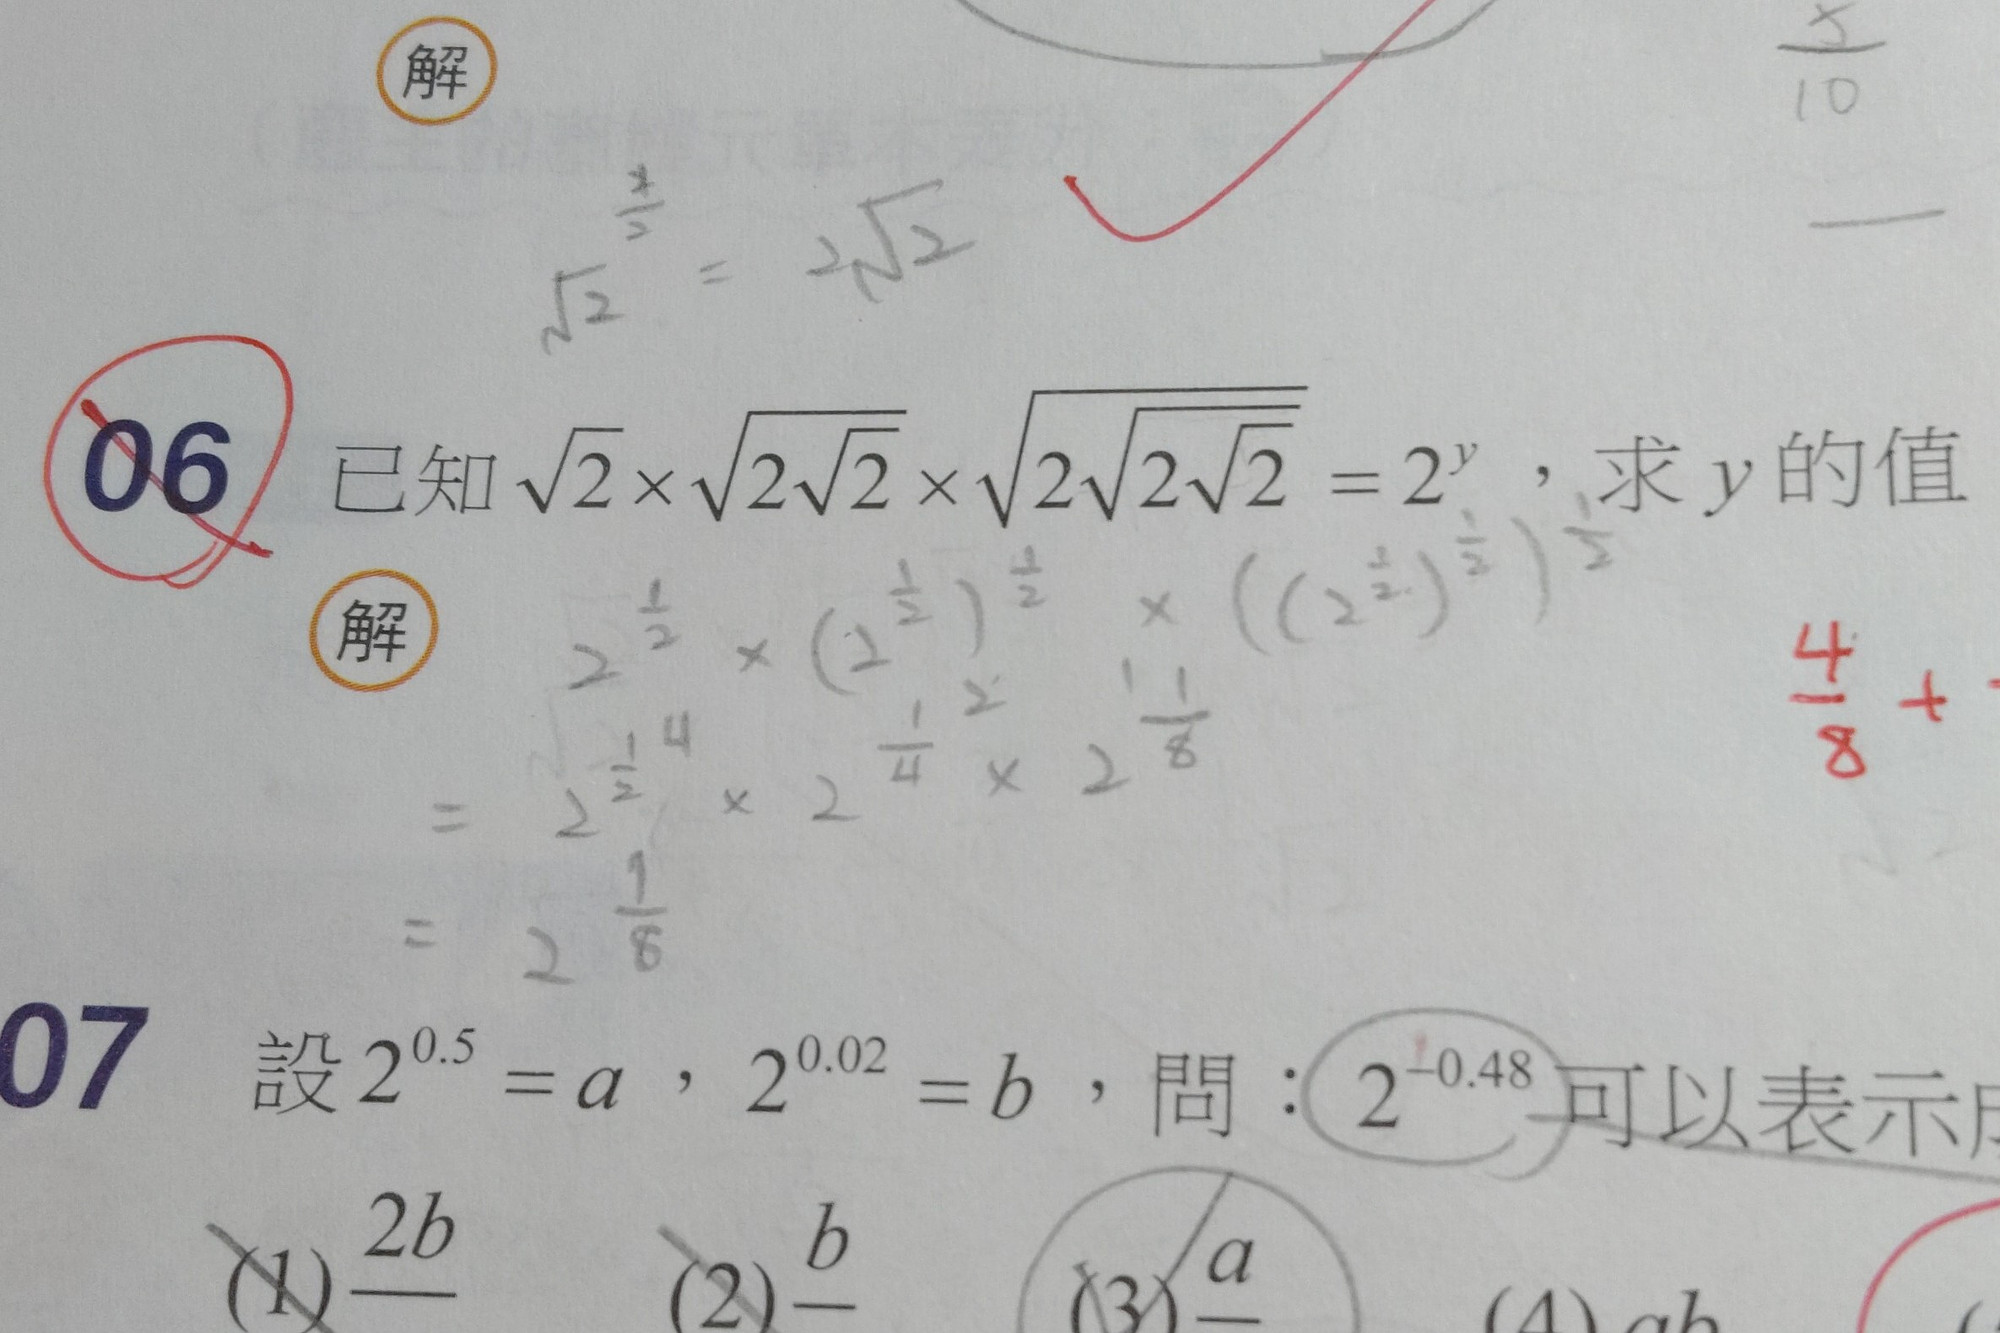 5/10
解
√2^(x/2) = 2√2
06 已知 √2 × √(2√2) × √(2√(2√2)) = 2^y ,求 y 的值
解 2^(1/2) × (2^(1/2))^(1/2) × ((2^(1/2))^(1/2))^(1/2)
4/8 +
= 2^(1/2) 4 × 2^(1/4) 2 × 2^(1/8) 1
= 2^(1/8)
07 設 2^0.5 = a ,2^0.02 = b ,問:2^−0.48 可以表示
(1) 2b (2) b (3) a (4) ab